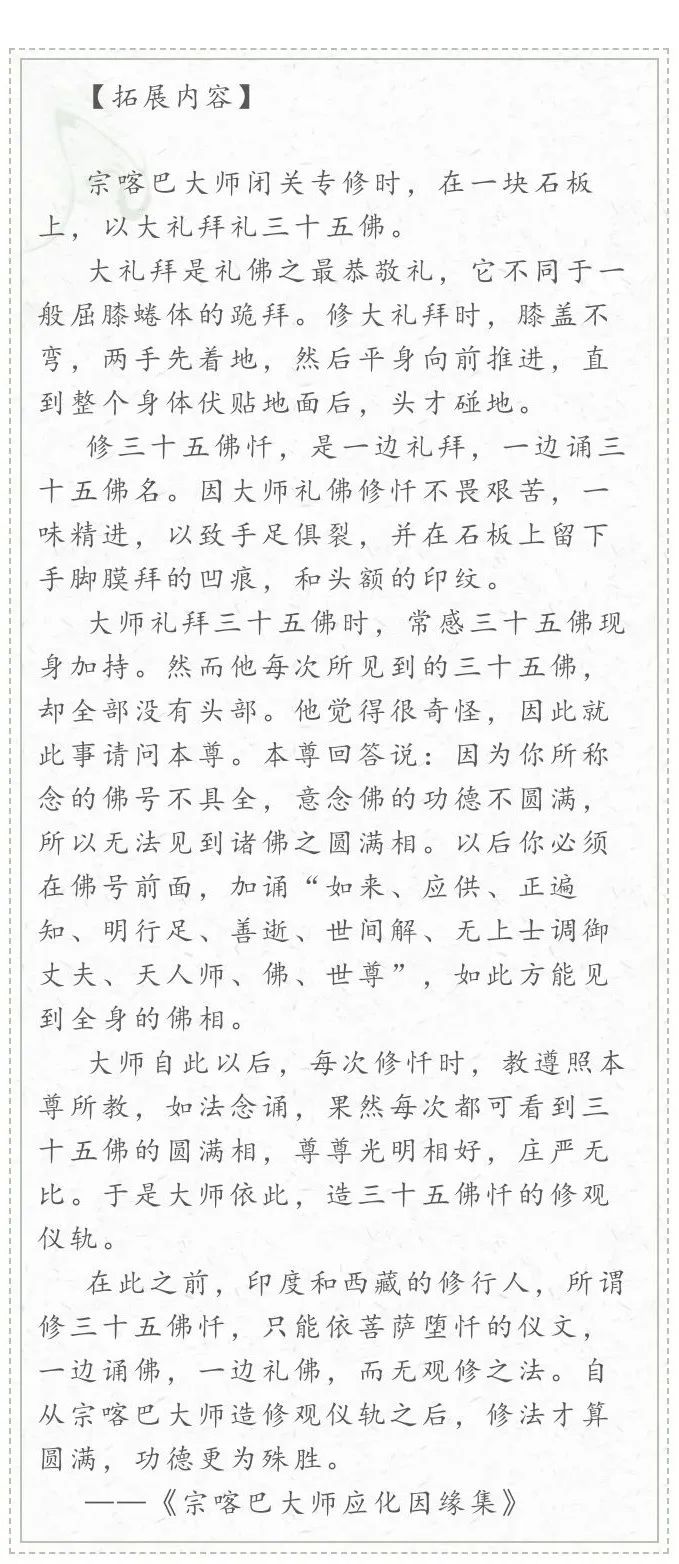 【拓展内容】
宗喀巴大师闭关专修时，在一块石板
上，以大礼拜礼三十五佛。
大礼拜是礼佛之最恭敬礼，它不同于一
般屈膝蜷体的跪拜。修大礼拜时，膝盖不
弯，两手先着地，然后平身向前推进，直
到整个身体伏贴地面后，头才碰地。
修三十五佛忏，是一边礼拜，一边诵三
十五佛名。因大师礼佛修忏不畏艰苦，一
味精进，以致手足俱裂，并在石板上留下
手脚膜拜的凹痕，和头额的印纹。
大师礼拜三十五佛时，常感三十五佛现
身加持。然而他每次所见到的三十五佛，
却全部没有头部。他觉得很奇怪，因此就
此事请问本尊。本尊回答说：因为你所称
念的佛号不具全，意念佛的功德不圆满，
所以无法见到诸佛之圆满相。以后你必须
在佛号前面，加诵“如来、应供、正遍
知、明行足、善逝、世间解、无上士调御
丈夫、天人师、佛、世尊”，如此方能见
到全身的佛相。
大师自此以后，每次修忏时，教遵照本
尊所教，如法念诵，果然每次都可看到三
十五佛的圆满相，尊尊光明相好，庄严无
比。于是大师依此，造三十五佛忏的修观
仪轨。
在此之前，印度和西藏的修行人，所谓
修三十五佛忏，只能依菩萨堕忏的仪文，
一边诵佛，一边礼佛，而无观修之法。自
从宗喀巴大师造修观仪轨之后，修法才算
圆满，功德更为殊胜。
——《宗喀巴大师应化因缘集》